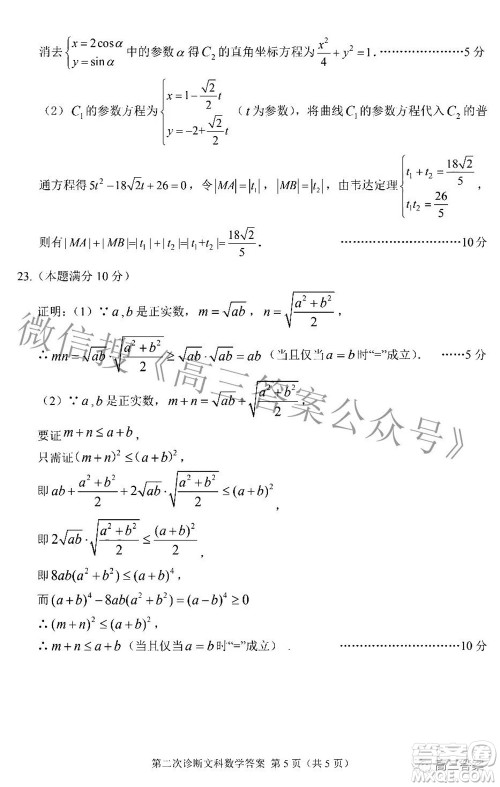 消去{x=2cosα y=sinα 中的参数α得C₂的直角坐标方程为x²/4+y²=1. ··················5分
（2）C₁的参数方程为{x=1-(√2/2)t y=-2+(√2/2)t （t为参数），将曲线C₁的参数方程代入C₂的普
通方程得5t²-18√2t+26=0，令|MA|=|t₁|，|MB|=|t₂|，由韦达定理{t₁+t₂=18√2/5 t₁t₂=26/5
则有|MA|+|MB|=|t₁|+|t₂|=|t₁+t₂|=18√2/5. ··················10分
23.（本题满分10分）
证明：（1）∵a,b是正实数，m=√ab，n=√((a²+b²)/2)
∴mn=√ab·√((a²+b²)/2)≥√ab·√ab=ab（当且仅当a=b时“=”成立）. ······5分
（2）∵a,b是正实数，m+n=√ab+√((a²+b²)/2)，
要证m+n≤a+b，
只需证(m+n)²≤(a+b)²，
即ab+(a²+b²)/2+2√ab·√((a²+b²)/2)≤(a+b)²，
即2√ab·√((a²+b²)/2)≤(a+b)²/2，
即8ab(a²+b²)≤(a+b)⁴，
而(a+b)⁴-8ab(a²+b²)≥0
∴(m+n)²≤(a+b)²，
∴m+n≤a+b（当且仅当a=b时“=”成立）. ··················10分
微信搜《高三答案公众号》
第二次诊断文科数学答案 第5页（共5页）
高三答案